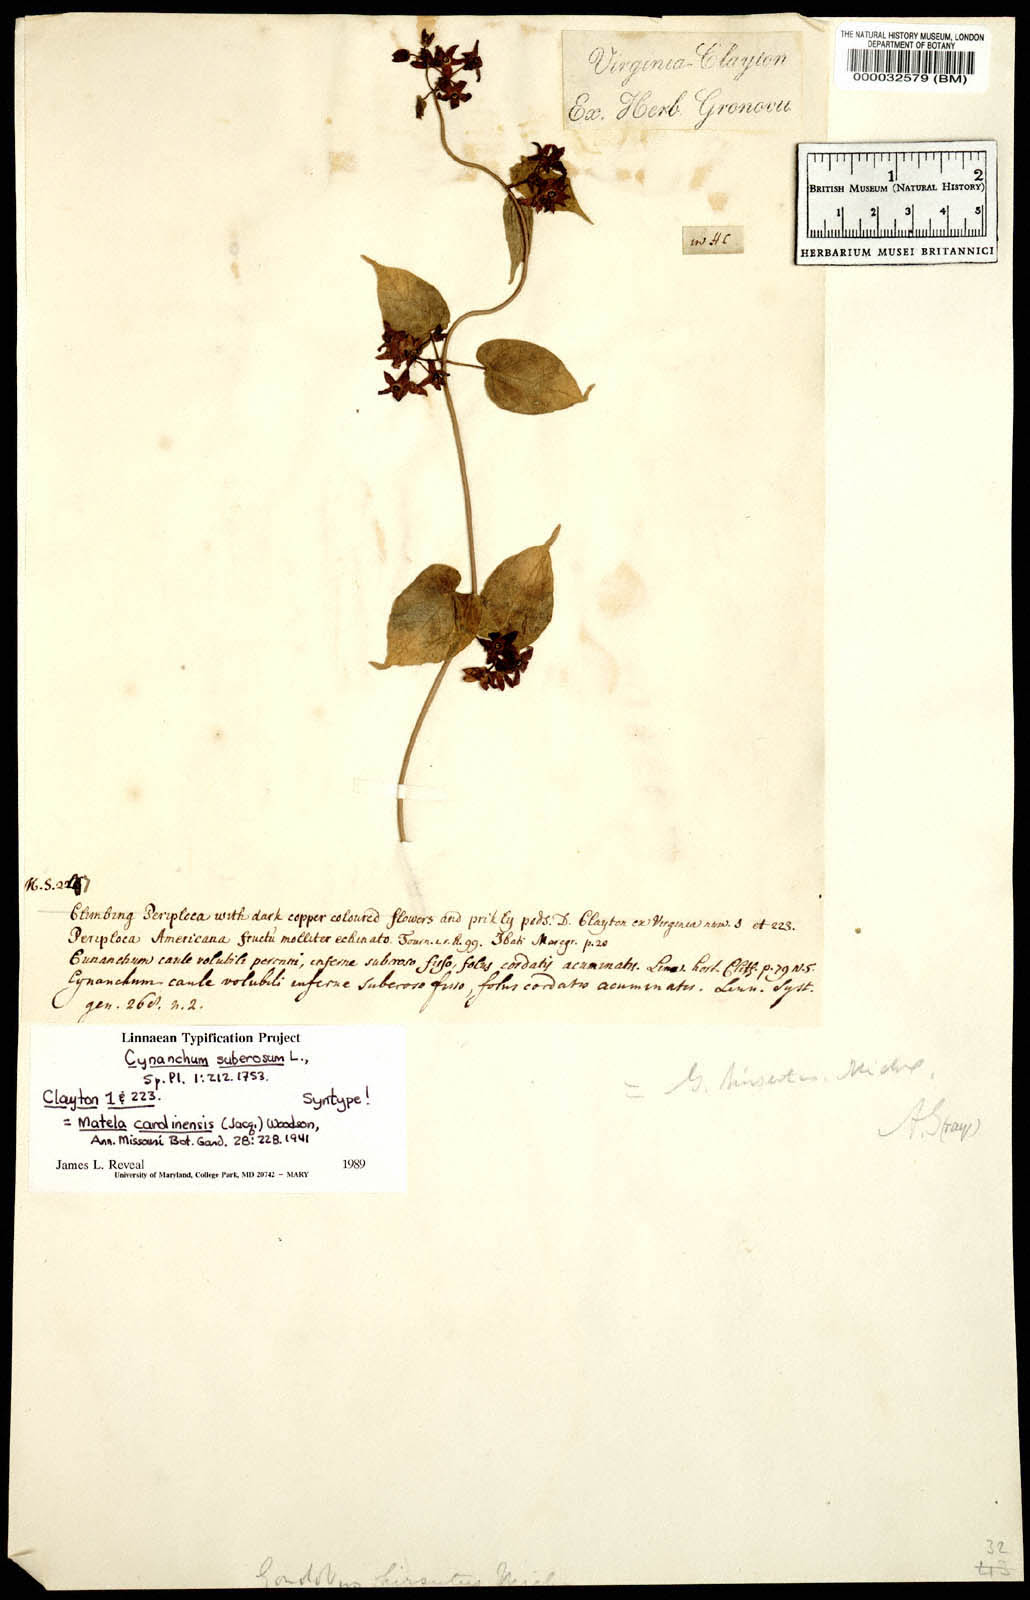 THE NATURAL HISTORY MUSEUM, LONDON
DEPARTMENT OF BOTANY
000032579 (BM)
Virginia - Clayton
Ex. Herb. Gronovii
1 2
BRITISH MUSEUM (NATURAL HISTORY)
1 2 3 4 5
HERBARIUM MUSEI BRITANNICI
Climbing Periploca with dark copper coloured flowers and prikly pods. D. Clayton ex Virginia num. 1 et 223.
Periploca Americana fructu molliter echinato. Tourn. i.r.h. 99. p. 20
Cunanchum caule volubili perenni, inferne suberoso fisso, foliis cordatis acuminatis. Linn. hort. Cliff. p. 79 n. 5.
Cynanchum caule volubili inferne suberoso fisso, foliis cordatis acuminatis. Linn. Syst.
gen. 268. n. 2.
Linnaean Typification Project
Cynanchum suberosum L.,
Sp. Pl. 1: 212. 1753.
Clayton 1 & 223. Syntype!
= Matela carolinensis (Jacq.) Woodson,
Ann. Missouri Bot. Gard. 28: 228. 1941
James L. Reveal 1989
University of Maryland, College Park, MD 20742 – MARY
= G. hirsutus. Michx.
A. G(ray)
32
hirsutus Mich